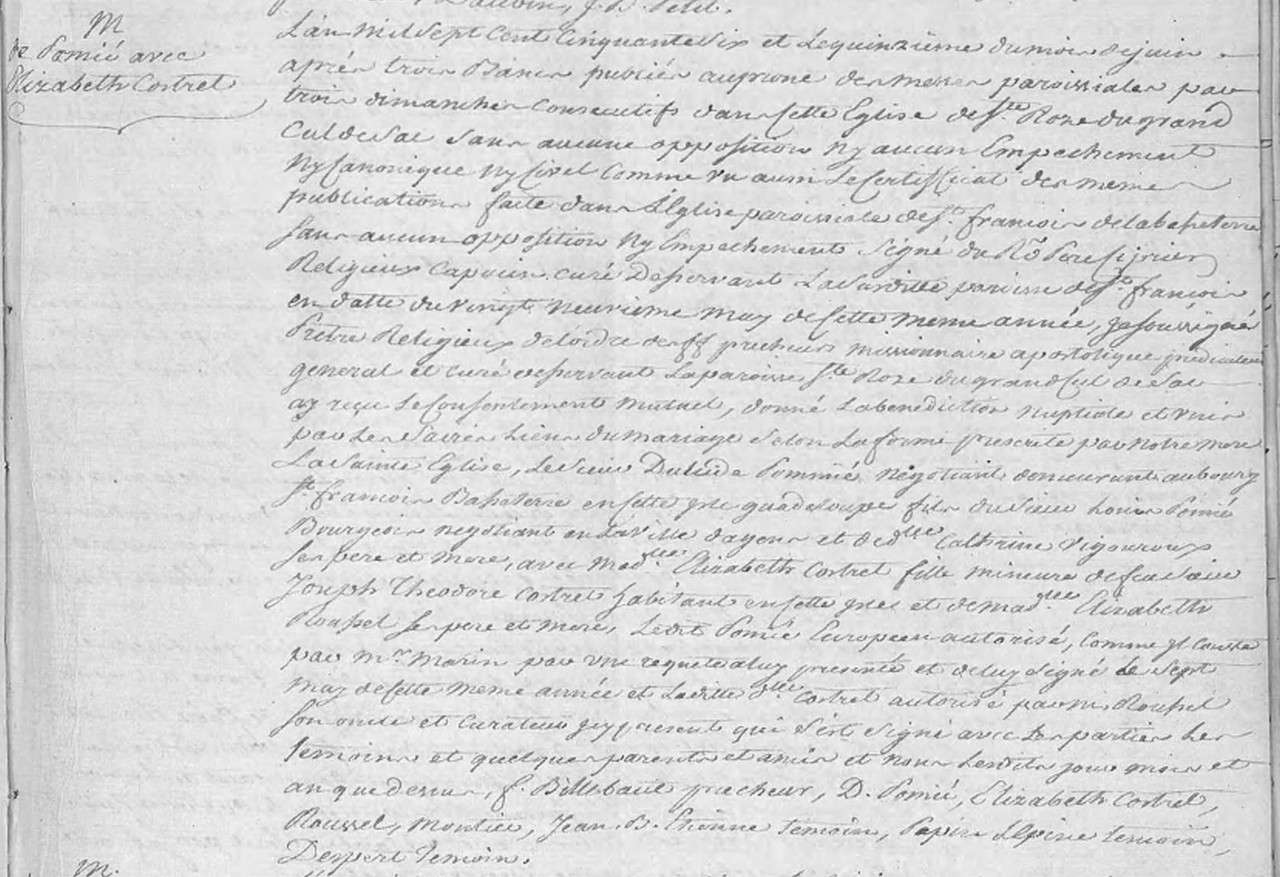 M
de Pomié avec
Elizabeth Cortret
L'an mil sept cent Cinquante six et le quinzième du mois de juin
après trois Bancs publiés au prone des messes paroissiales par
trois dimanches consecutifs dans cette Eglise de Ste Roze du grand
Cul de Sac sans aucune opposition Ny aucun Empechement
Ny Canonique Ny Civel Comme vu aussi le certificat des meme
publications faite dans l'Eglise paroissiale de St francois de la basseterre
sans aucun opposition Ny Empechement signé du Rd Pere
Religieux Capucin curé Desservant La susditte paroisse de St francois
en datte du vingt neuvieme may de cette meme année, je soussigné
Prêtre Religieux de l'ordre des ff precheurs missionnaire apostolique
general et curé desservant la paroisse Ste Roze du grand Cul de Sac
ay reçu le consentement mutuel, donné la benediction nuptiale et unis
par les sacrés liens du mariage selon la forme prescrite par notre mere
La Sainte Eglise, le sieur Pommié negotiant demeurant au bourg
St francois Basseterre en cette isle guadeloupe fils du sieur Louis Pomié
Bourgeois negotiant en la ville d'agens et de dlle Cathrine Vigouroux
ses pere et mere, avec madlle Elizabeth Cortret fille mineure de feu sieur
Joseph Theodore Cortret habitant en cette isle et de madlle Elizabeth
Roussel ses pere et mere, ledit Pomié Europeen autorisé, comme jl conste
par mr Marin par une requete a luy presenté et de luy signé le sept
may de cette meme année et laditte dlle Cortret autorisé par m. Roussel
son oncle et curateur jcy present qui s'est signé avec les parties les
temoins et quelques parents et amis et nous lesdits jour mois et
an que dessus, f. Billebaut precheur, D. Pomié, Elizabeth Cortret,
Roussel, Montier, Jean B. Etienne temoin, Papin Lepine temoin,
Despert temoin.
M.